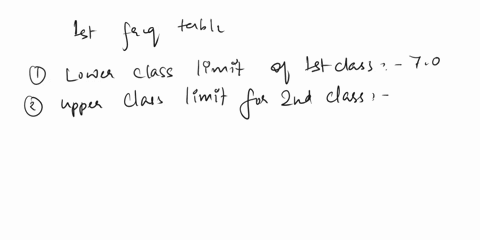 1st freq table
① Lower class limit of 1st class :- 7.0
② upper class limit for 2nd class :-